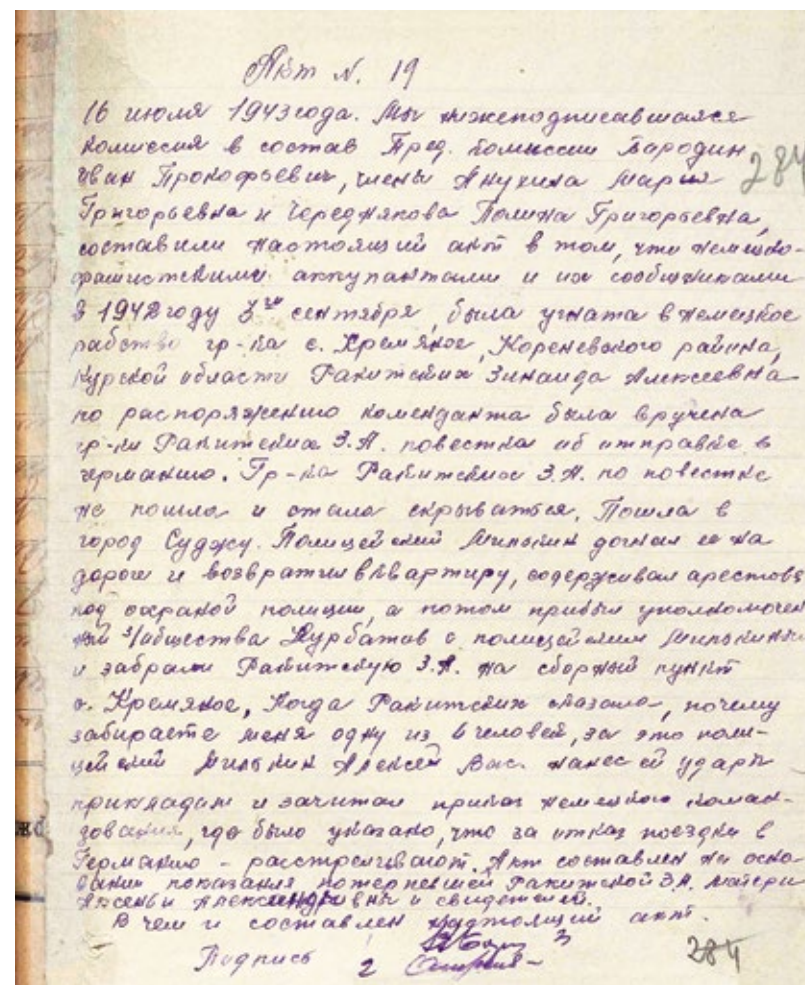 Акт N. 19
16 июля 1943 года. Мы нижеподписавшаяся
комиссия в состав Пред. комиссии Бородин
Иван Прокофьевич, члены Анухина Мария
284
Григорьевна и Череднякова Полина Григорьевна,
составили настоящий акт в том, что немецко-
фашистскими аккупантами и их сообщниками
в 1942 году 3го сентября, была угната в немецкое
рабство гр-ка с. Кремяное, Кореневского района,
Курской области Ракитских Зинаида Алексеевна
по распоряжению коменданта была вручена
гр-ки Ракитских З.А. повестка об отправке в
германию. Гр-ка Ракитских З.А. по повестке
не пошла и стала скрываться. Пошла в
город Суджу. Полицейский Милькин догнал ее на
дороге и возвратил в квартиру, содерживал арестов
под охраной полиции, а потом прибыл уполномочен
ный з/общества Курбатов с полицейским Милькиным
и забрали Ракитскую З.А. на сборный пункт
с. Кремяное, Когда Ракитских сказала, почему
забираете меня одну из 6 человек, за это поли-
цейский Милькин Алексей Вас. нанес ей удары
прикладам и зачитал приказ немецкого коман-
дования, где было указано, что за отказ поездки в
Германию - расстреливают. Акт составлен на осно-
вании показания потерпевшей Ракитской З.А. матери
Аксеньи Александривны и свидетелей.
В чем и составлен настоящий акт.
Подпись 2 3
284